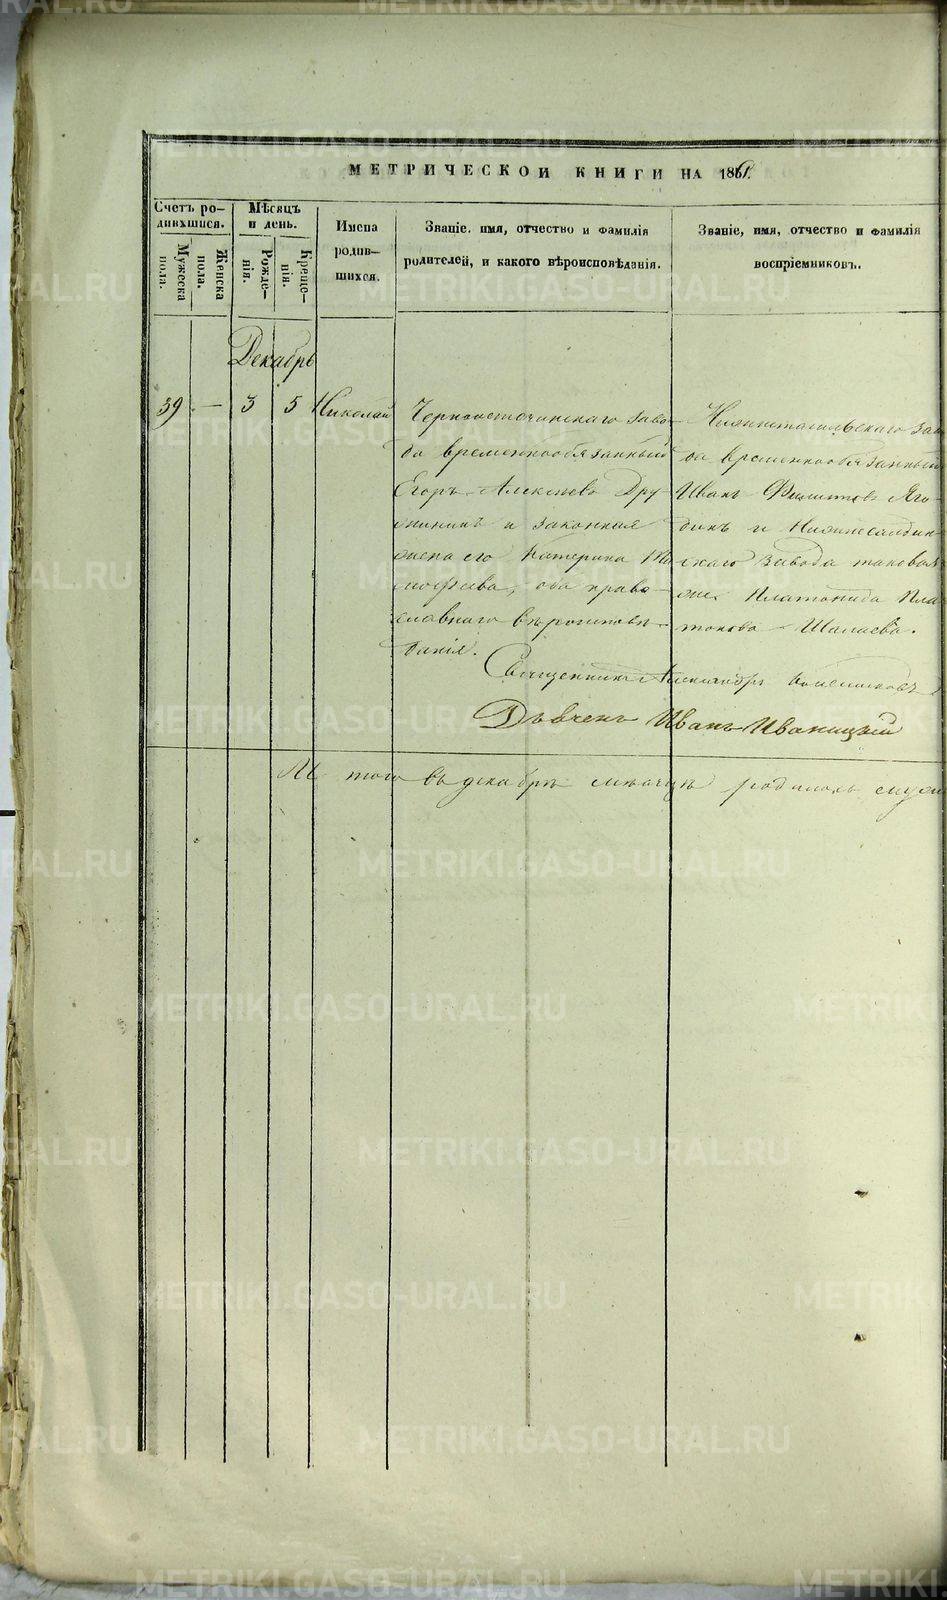 МЕТРИЧЕСКОЙ КНИГИ НА 1861.
Счетъ ро-
дившихся.
Мужеска
пола.
Женска
пола.
Мѣсяцъ
и день.
Рожде-
нія.
Креще-
нія.
Имена
родив-
шихся.
Званіе, имя, отчество и фамилія
родителей, и какого вѣроисповѣданія.
Званіе, имя, отчество и фамилія
воспріемниковъ.
Декабрь
39 — 3 5 Николай
Черноисточинскаго заво-
да временнообязанный
Егоръ Алексѣевъ Дру-
жининъ и законная
жена его Катерина Ти-
мофѣева, оба право-
славнаго вѣроисповѣ-
данія.
Нижнетагильскаго заво
да временнообязанный
Иванъ Филиповъ Яго-
динъ и Нижнесалдин-
скаго завода таковая
же Платонида Пла-
тонова Шалаева.
Священникъ Александръ
Дьячекъ Иванъ Иваницкій
И того въ декабрѣ мѣсяцѣ родилось муже
METRIKI.GASO-URAL.RU